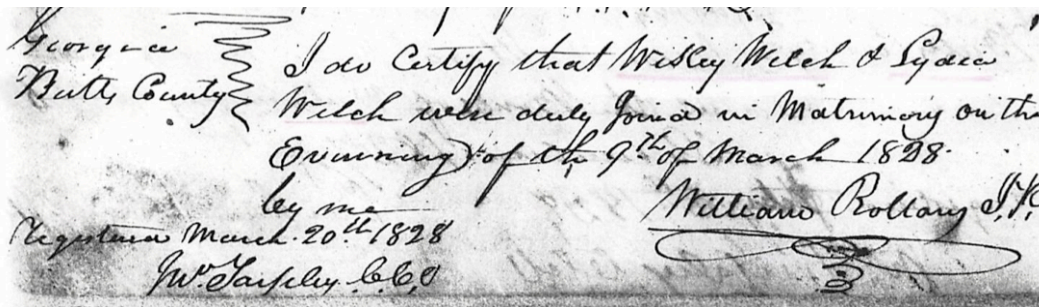 Georgia
Butts County
I do Certify that Wiley Welch & Lydia
Welch were duly Joind in Matrimony on the
Evinning of the 9th of March 1828.
by me
William Rollary J.P.
Registered March 20th 1828
Jno. Tarpley C.C.O